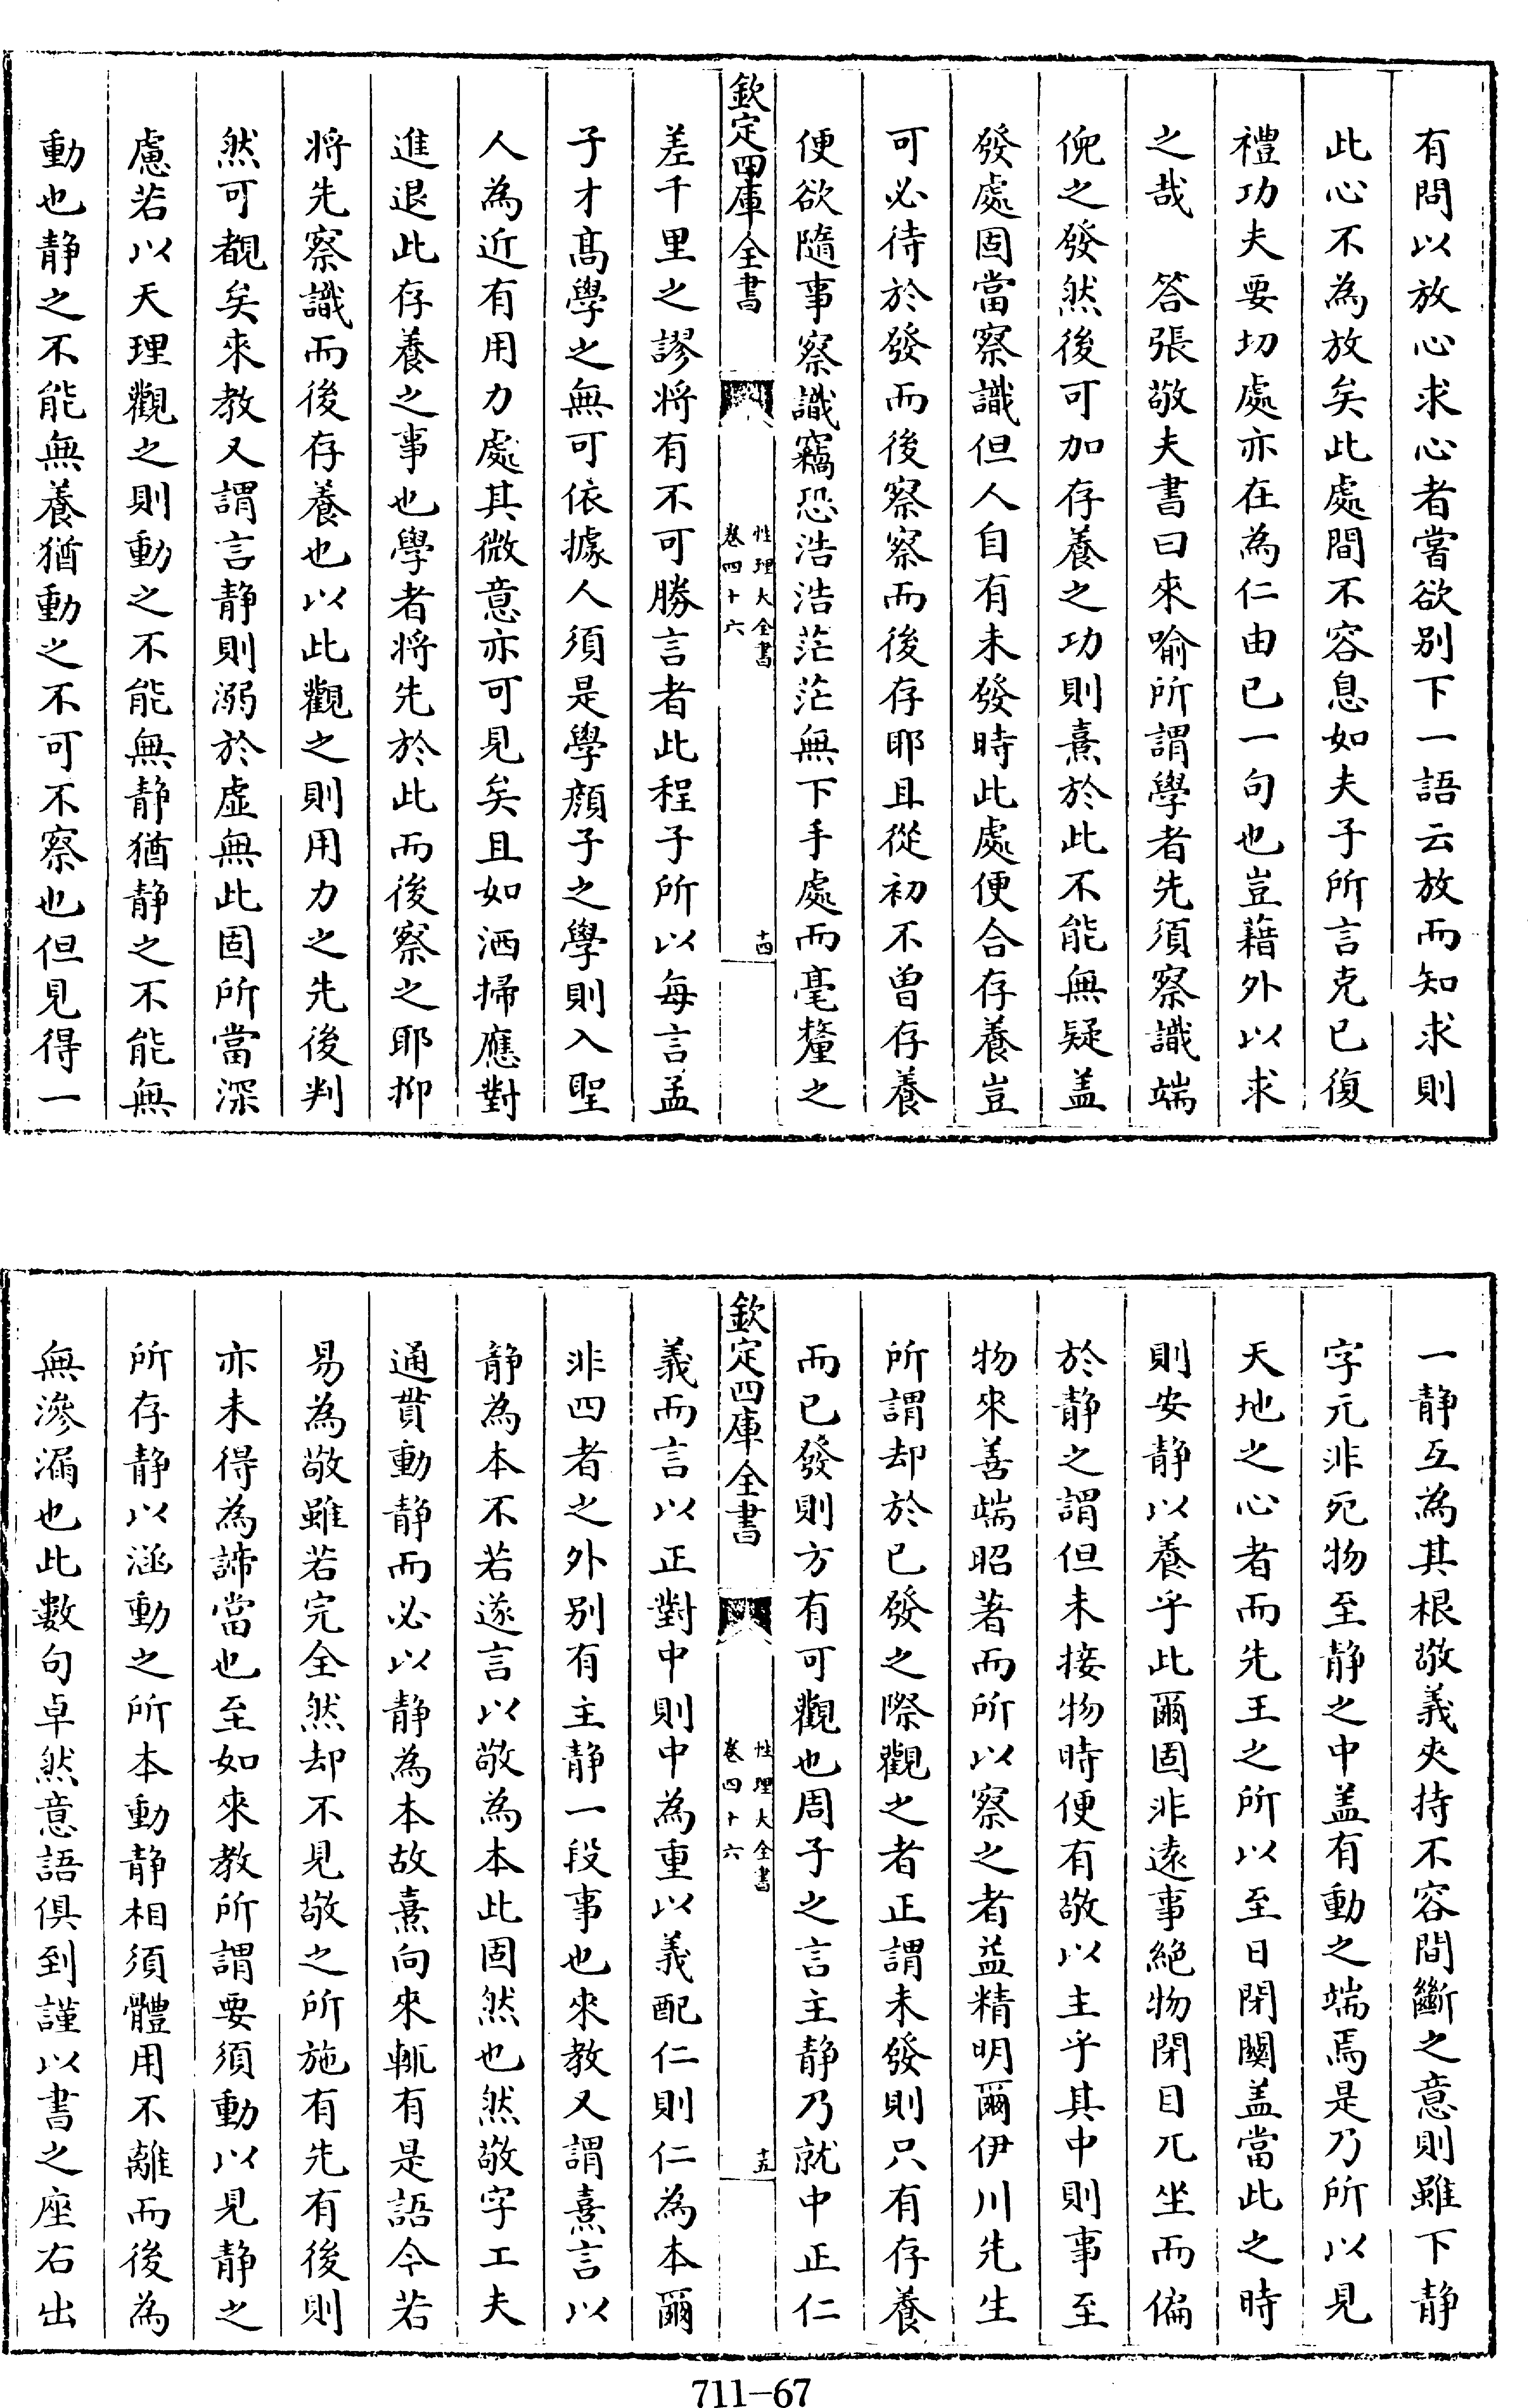 有問以放心求心者嘗欲别下一語云放而知求則
此心不為放矣此處間不容息如夫子所言克已復
禮功夫要切處亦在為仁由已一句也豈藉外以求
之哉　答張敬夫書曰來喻所謂學者先須察識端
倪之發然後可加存養之功則熹於此不能無疑盖
發處固當察識但人自有未發時此處便合存養豈
可必待於發而後察察而後存耶且從初不曽存養
便欲隨事察識竊恐浩浩茫茫無下手處而毫釐之
欽定四庫全書
性理大全書
卷四十六
十四
差千里之謬将有不可勝言者此程子所以每言孟
子才髙學之無可依據人須是學顔子之學則入聖
人為近有用力處其微意亦可見矣且如洒掃應對
進退此存養之事也學者将先於此而後察之耶抑
将先察識而後存養也以此觀之則用力之先後判
然可覩矣來教又謂言静則溺於虚無此固所當深
慮若以天理觀之則動之不能無静猶静之不能無
動也静之不能無養猶動之不可不察也但見得一
一静互為其根敬義夾持不容間斷之意則雖下静
字元非死物至静之中盖有動之端焉是乃所以見
天地之心者而先王之所以至日閉闗盖當此之時
則安静以養乎此爾固非逺事絶物閉目兀坐而偏
於静之謂但未接物時便有敬以主乎其中則事至
物來善端昭著而所以察之者益精明爾伊川先生
所謂却於已發之際觀之者正謂未發則只有存養
而已發則方有可觀也周子之言主静乃就中正仁
欽定四庫全書
性理大全書
卷四十六
十五
義而言以正對中則中為重以義配仁則仁為本爾
非四者之外别有主静一段事也來教又謂熹言以
静為本不若遂言以敬為本此固然也然敬字工夫
通貫動静而必以静為本故熹向來輒有是語今若
易為敬雖若完全然却不見敬之所施有先有後則
亦未得為諦當也至如來教所謂要須動以見静之
所存静以涵動之所本動静相須體用不離而後為
無滲漏也此數句卓然意語俱到謹以書之座右出
711-67